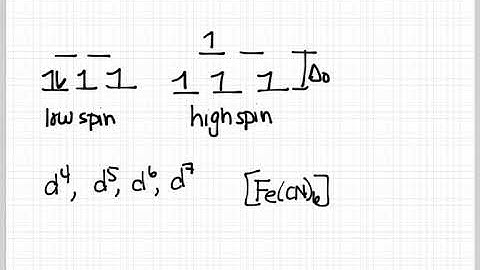 1 
1↓ 1 1 1 1 1 Δ₀
low spin high spin
d⁴, d⁵, d⁶, d⁷ [Fe(CN)₆]